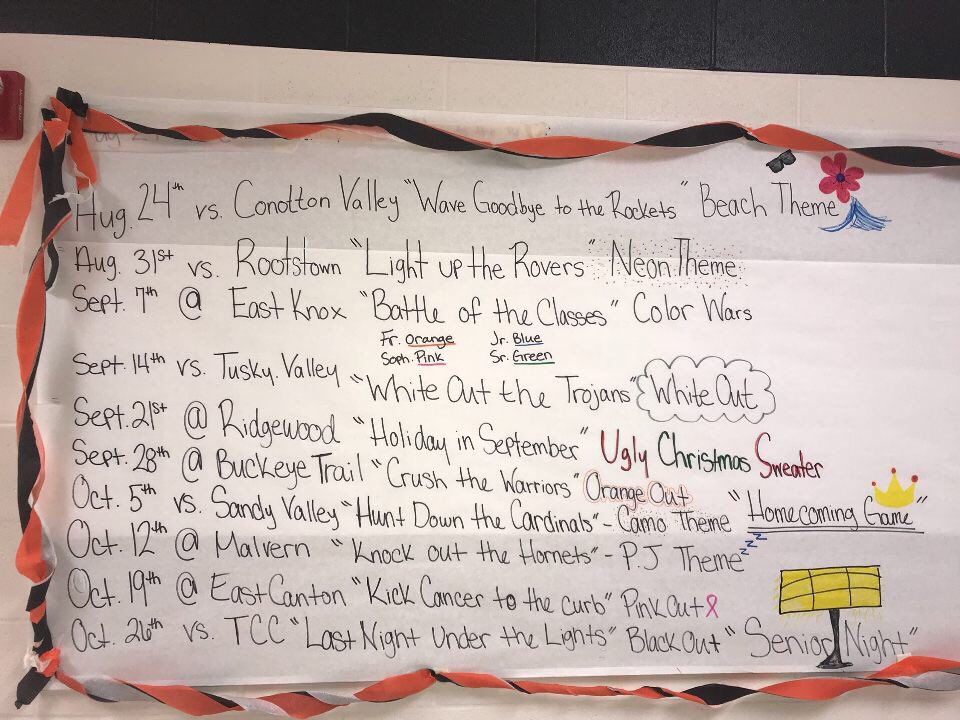 Aug. 24th vs. Conotton Valley "Wave Goodbye to the Rockets" Beach Theme
Aug. 31st vs. Rootstown "Light up the Rovers" Neon Theme
Sept. 7th @ East Knox "Battle of the Classes" Color Wars
Fr. Orange Jr. Blue
Soph. Pink Sr. Green
Sept. 14th vs. Tusky. Valley "White Out the Trojans" White Out
Sept. 21st @ Ridgewood "Holiday in September" Ugly Christmas Sweater
Sept. 28th @ Buckeye Trail "Crush the Warriors" Orange Out
Oct. 5th vs. Sandy Valley "Hunt Down the Cardinals" - Camo Theme "Homecoming Game"
Oct. 12th @ Malvern "Knock out the Hornets" - P.J Theme zzz
Oct. 19th @ East Canton "Kick Cancer to the curb" Pink Out
Oct. 26th vs. TCC "Last Night Under the Lights" Black Out "Senior Night"